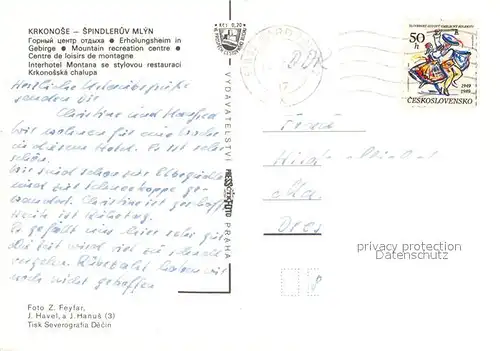 KRKONOŠE – ŠPINDLERŮV MLÝN
Горный центр отдыха ● Erholungsheim in
Gebirge ● Mountain recreation centre ●
Centre de loisirs de montagne
Interhotel Montana se stylovou restaurací
Krkonošská chalupa
Herzliche Urlaubsgrüße
senden Dir
Christine und Manfred
Wir wohnen für eine Woche
in diesem Hotel. Es ist sehr
schön.
Wir sind schon zur Elbquelle
und zur Schneekoppe ge-
wandert. Christine ist geschafft
Heute ist Ruhetag.
Es gefällt uns hier sehr gut.
Die Zeit wird viel zu schnell
vergehen. Rübezahl haben wir
noch nicht getroffen
Foto Z. Feyfar,
J. Havel, a J. Hanuš (3)
Tisk Severografia Děčín
Kčs 0,70
VYDAVATELSTVÍ PRESSFOTO PRAHA
DDR
17
50
h
1949
1989
ČESKOSLOVENSKO
privacy protection
Datenschutz